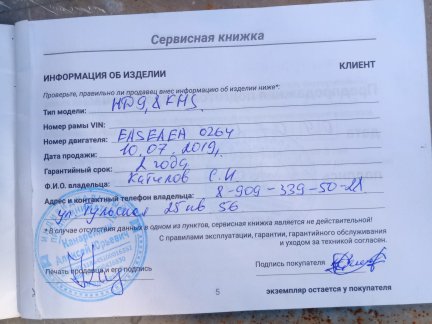 Сервисная книжка
ИНФОРМАЦИЯ ОБ ИЗДЕЛИИ
КЛИЕНТ
Проверьте, правильно ли продавец внес информацию об изделии ниже*:
Тип модели: HD9,8FHS
Номер рамы VIN:
Номер двигателя: EASEAEA 0264
Дата продажи: 10.07.2019г.
Гарантийный срок: 2 года
Ф.И.О. владельца: С.И
Адрес и контактный телефон владельца: 8-909-339-50-
ул. Тульская 25 кв 56
*В случае отсутствия данных в одном из пунктов, сервисная книжка является не действительной!
С правилами эксплуатации, гарантии, гарантийного обслуживания
и ухода за техникой согласен.
Печать продавца и его подпись
Подпись покупателя
5
экземпляр остается у покупателя